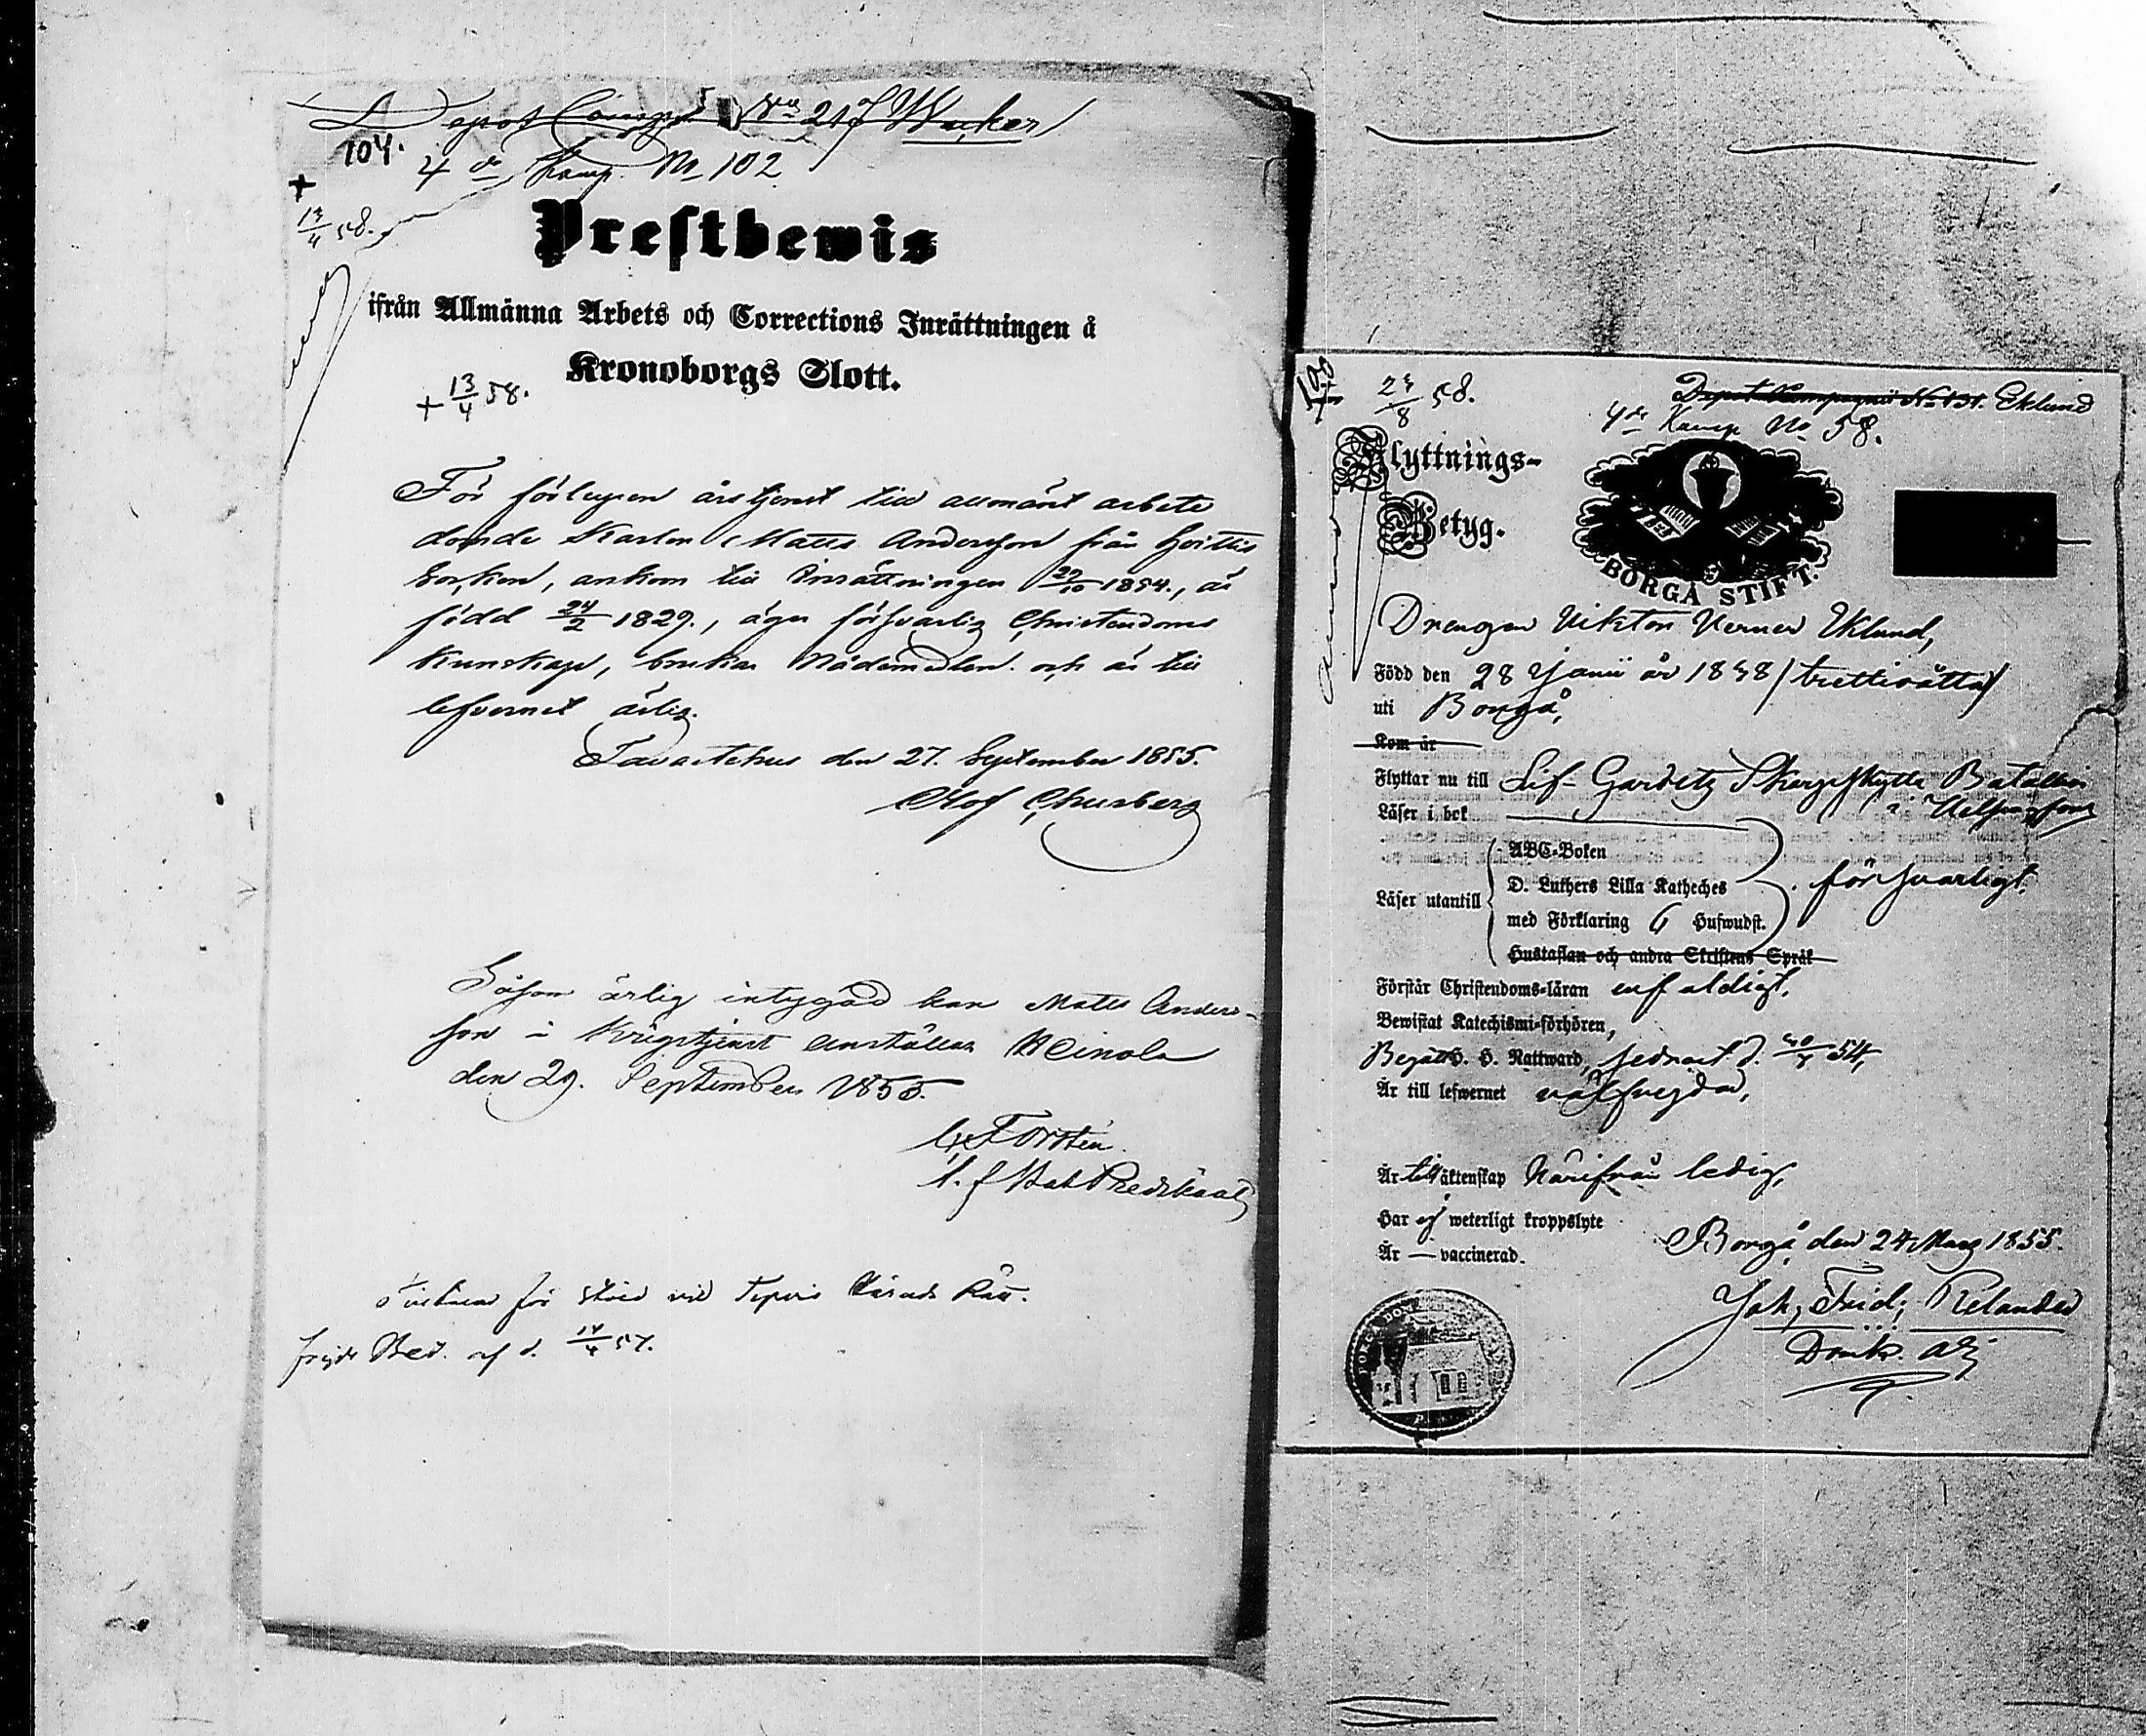 Depot Comp. No 217 Wacker
104.
4de Komp. No 102
+
13/4 58.
Prestbewis
ifrån Allmänna Arbets och Corrections Inrättningen å
Kronoborgs Slott.
+ 13/4 58.
För förlupen årstjenst till allmänt arbete
dömde Karlen Matts Andersson från Hvittis
Socken, ankom till Inrättningen 29/10 1854., är
född 24/2 1829., äger försvarlig Christendoms
Kunskap, brukar Nådemedlen och är till
lefvernet ärlig.
Tavastehus den 27. September 1855.
Såsom ärlig intygad kan Matts Anders-
son i Krigstjenst anställas Heinola
den 29. September 1855.
Forstén
för vid Härads Rätt.
Bev. af d. 57.
100
58.
Depot Kompagnii No 131. Eklund
4de Komp No 58.
Flyttnings-
Betyg.
BORGÅ STIFT.
Drengen Viktor Verner Eklund,
Född den 28 Junii år 1838 (trettioåtta)
uti Borgå,
Kom år
Flyttar nu till Lif-Gardets Skarpskytte Bataljon
i Helsingfors
Läser i bok
ABC-Boken
D. Luthers Lilla Katheches
försvarligt.
Läser utantill
med Förklaring 6 Hufwudst.
Hustaflan och andra Skriftens Språk
Förstår Christendoms-läran enfaldigt,
Bewistat Katechismi-förhören,
Begått H. H. Nattward, sednast d. 54,
Är till lefwernet välfrejdad,
Är till äktenskap härifrån ledig,
Har ej weterligt kroppslyte
Är — vaccinerad.
Borgå den 24 Mars 1855.
Joh. Frid. Relander